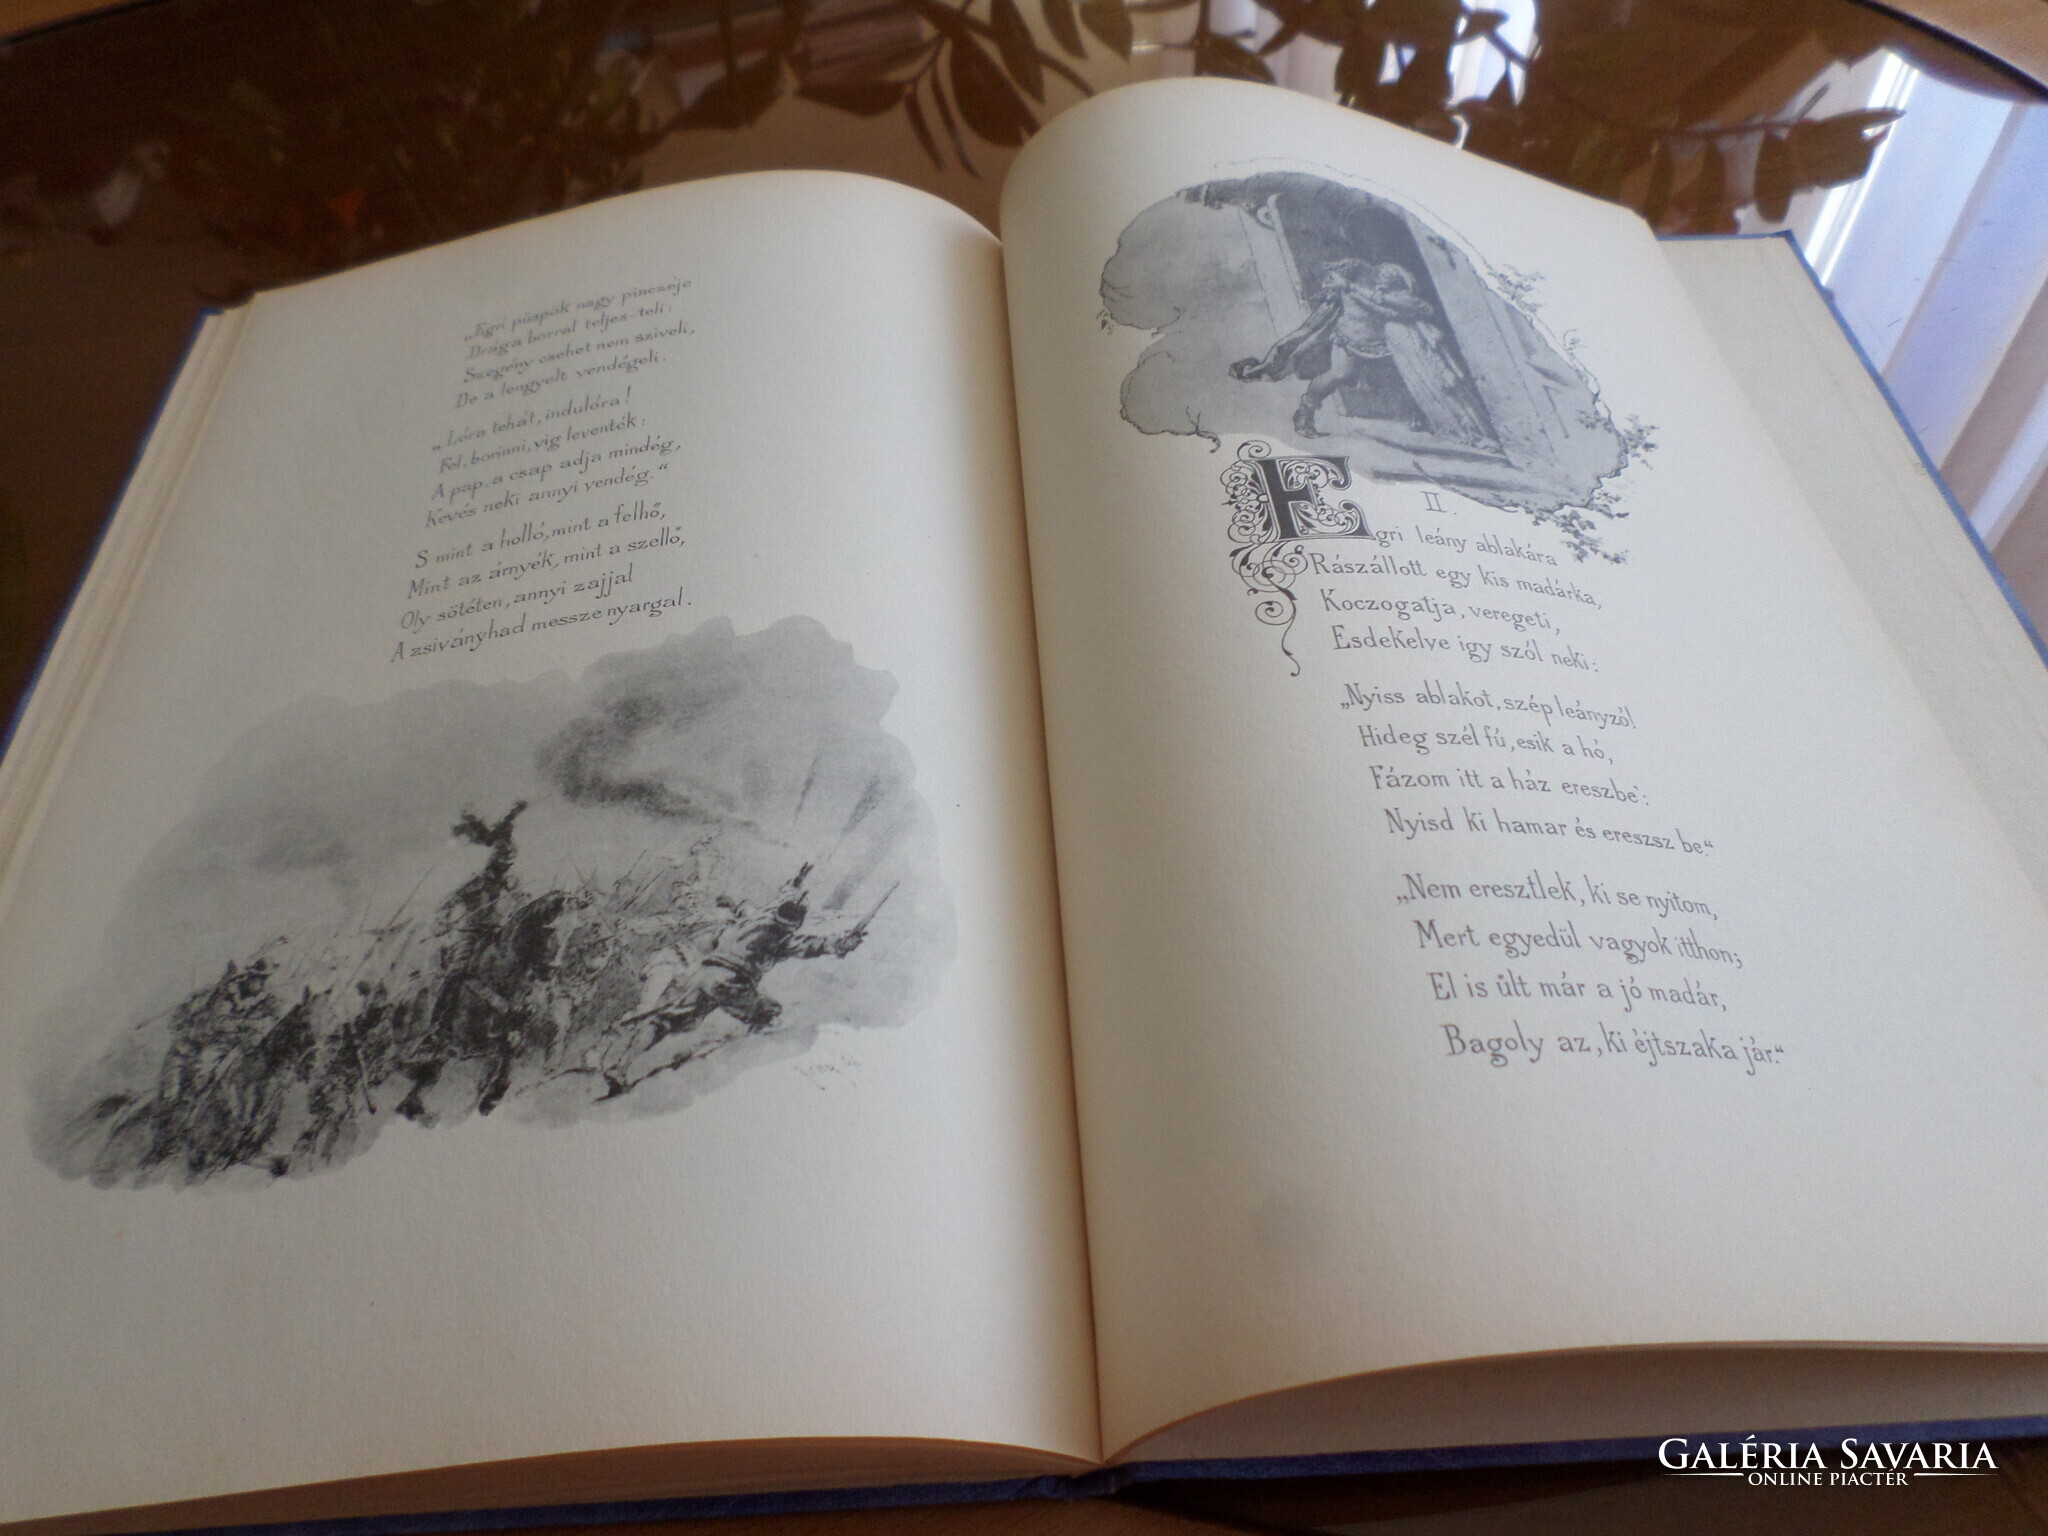 „Egri püspök nagy pinczéje
Drága borral teljes-teli:
Szegény csehet nem sziveli,
De a lengyelt vendégeli.
„Lóra tehát, indulóra!
Fel, borinni, vig leventék:
A pap, a csap adja mindég,
Kevés neki annyi vendég.“
S mint a holló, mint a felhő,
Mint az árnyék, mint a szellő,
Oly sötéten, annyi zajjal
A zsiványhad messze nyargal.
II.
Egri leány ablakára
Rászállott egy kis madárka,
Koczogatja, veregeti,
Esdekelve igy szól neki:
„Nyiss ablakot, szép leányzó!
Hideg szél fú, esik a hó,
Fázom itt a ház ereszbe':
Nyisd ki hamar és ereszsz be.“
„Nem eresztlek, ki se nyitom,
Mert egyedül vagyok itthon;
El is ült már a jó madár,
Bagoly az, ki éjtszaka jár.“
GALÉRIA SAVARIA
ONLINE PIACTÉR